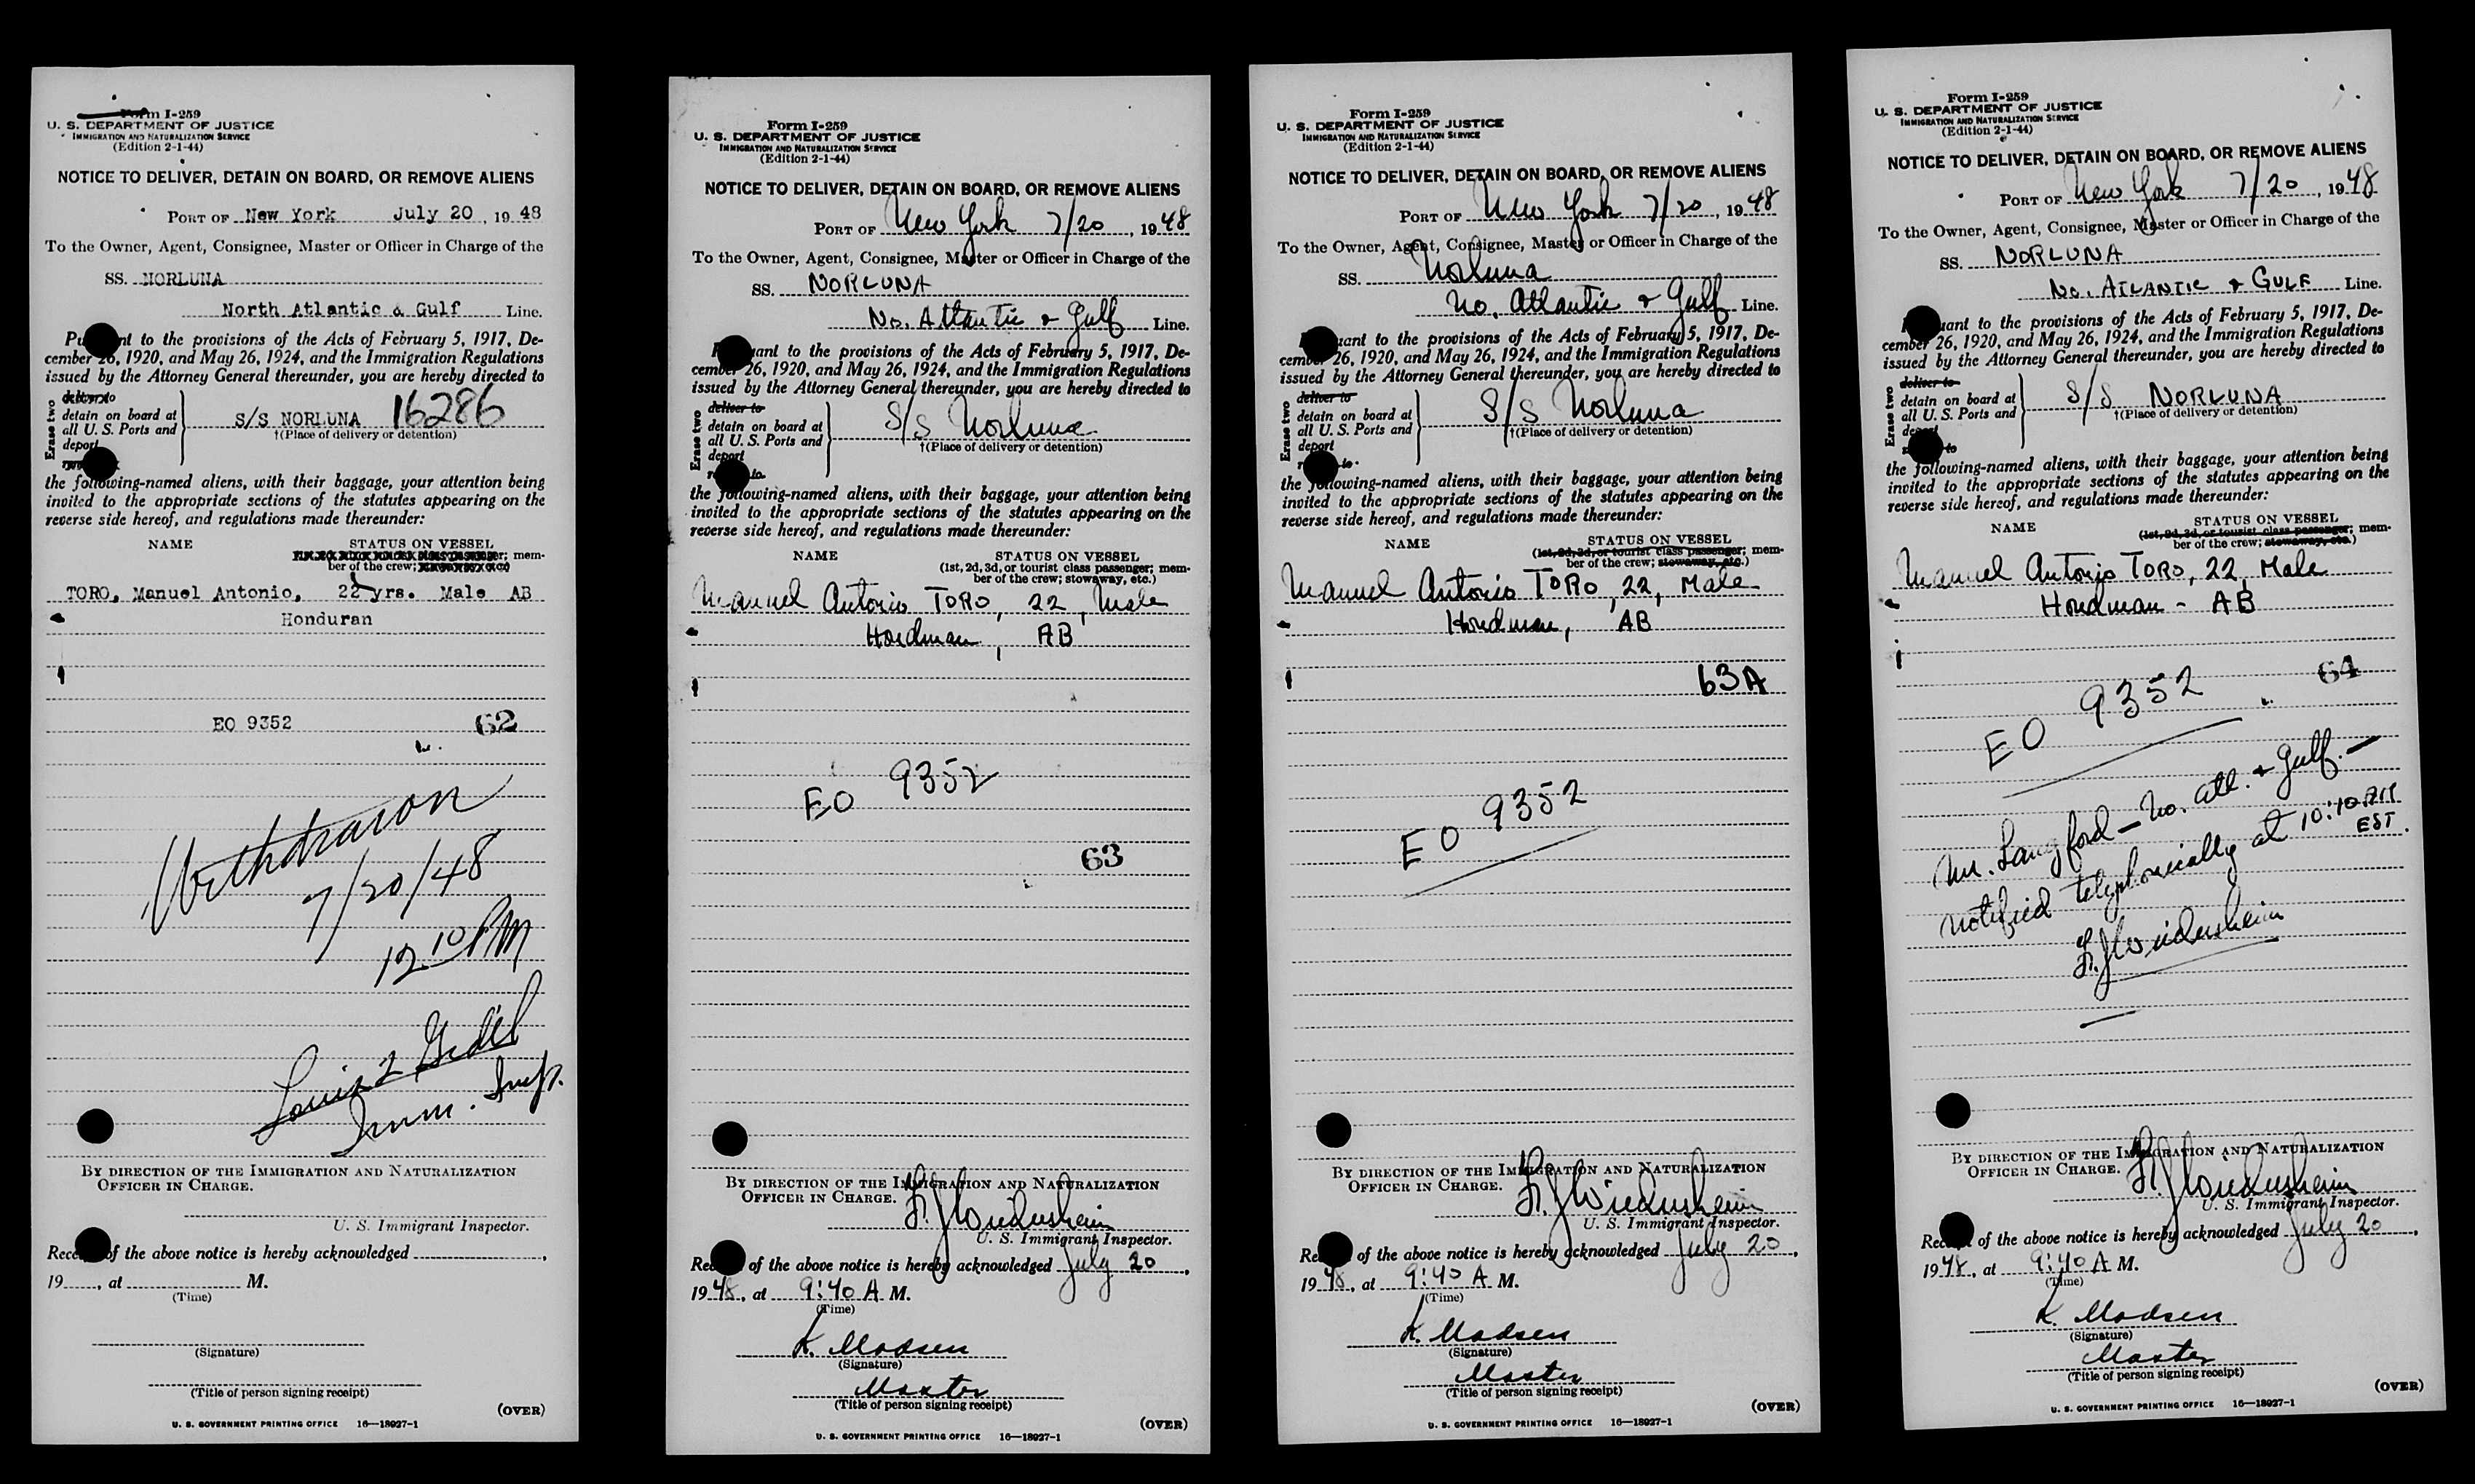 Form I-259
U. S. DEPARTMENT OF JUSTICE
IMMIGRATION AND NATURALIZATION SERVICE
(Edition 2-1-44)
NOTICE TO DELIVER, DETAIN ON BOARD, OR REMOVE ALIENS
PORT OF New York July 20, 1948
To the Owner, Agent, Consignee, Master or Officer in Charge of the
SS. NORLUNA
North Atlantic & Gulf Line.
Pursuant to the provisions of the Acts of February 5, 1917, De-
cember 26, 1920, and May 26, 1924, and the Immigration Regulations
issued by the Attorney General thereunder, you are hereby directed to
Erase two
deliver to
detain on board at
all U. S. Ports and
deport
S/S NORLUNA 16286
†(Place of delivery or detention)
the following-named aliens, with their baggage, your attention being
invited to the appropriate sections of the statutes appearing on the
reverse side hereof, and regulations made thereunder:
NAME STATUS ON VESSEL
mem-
ber of the crew;
TORO, Manuel Antonio, 22 yrs. Male AB
Honduran
EO 9352 62
Withdrawn
7/20/48
12 10 PM
Louis
Imm. Insp.
BY DIRECTION OF THE IMMIGRATION AND NATURALIZATION
OFFICER IN CHARGE.
U. S. Immigrant Inspector.
Receipt of the above notice is hereby acknowledged ,
19 , at M.
(Time)
(Signature)
(Title of person signing receipt)
(OVER)
U. S. GOVERNMENT PRINTING OFFICE 16—18927-1
Form I-259
U. S. DEPARTMENT OF JUSTICE
IMMIGRATION AND NATURALIZATION SERVICE
(Edition 2-1-44)
NOTICE TO DELIVER, DETAIN ON BOARD, OR REMOVE ALIENS
PORT OF New York 7/20, 1948
To the Owner, Agent, Consignee, Master or Officer in Charge of the
SS. NORLUNA
No. Atlantic & Gulf Line.
Pursuant to the provisions of the Acts of February 5, 1917, De-
cember 26, 1920, and May 26, 1924, and the Immigration Regulations
issued by the Attorney General thereunder, you are hereby directed to
Erase two
deliver to
detain on board at
all U. S. Ports and
deport
S/S Norluna
†(Place of delivery or detention)
the following-named aliens, with their baggage, your attention being
invited to the appropriate sections of the statutes appearing on the
reverse side hereof, and regulations made thereunder:
NAME STATUS ON VESSEL
(1st, 2d, 3d, or tourist class passenger; mem-
ber of the crew; stowaway, etc.)
Manuel Antonio TORO, 22, Male
Honduran, AB
EO 9352
63
BY DIRECTION OF THE IMMIGRATION AND NATURALIZATION
OFFICER IN CHARGE.
U. S. Immigrant Inspector.
Receipt of the above notice is hereby acknowledged July 20,
1948, at 9:40 A M.
(Time)
K. Madsen
(Signature)
Master
(Title of person signing receipt)
(OVER)
U. S. GOVERNMENT PRINTING OFFICE 16—18927-1
Form I-259
U. S. DEPARTMENT OF JUSTICE
IMMIGRATION AND NATURALIZATION SERVICE
(Edition 2-1-44)
NOTICE TO DELIVER, DETAIN ON BOARD, OR REMOVE ALIENS
PORT OF New York 7/20, 1948
To the Owner, Agent, Consignee, Master or Officer in Charge of the
SS. Norluna
No. Atlantic & Gulf Line.
Pursuant to the provisions of the Acts of February 5, 1917, De-
cember 26, 1920, and May 26, 1924, and the Immigration Regulations
issued by the Attorney General thereunder, you are hereby directed to
Erase two
deliver to
detain on board at
all U. S. Ports and
deport
S/S Norluna
†(Place of delivery or detention)
the following-named aliens, with their baggage, your attention being
invited to the appropriate sections of the statutes appearing on the
reverse side hereof, and regulations made thereunder:
NAME STATUS ON VESSEL
(1st, 2d, 3d, or tourist class passenger; mem-
ber of the crew; stowaway, etc.)
Manuel Antonio TORO, 22, Male
Honduran, AB
63A
EO 9352
BY DIRECTION OF THE IMMIGRATION AND NATURALIZATION
OFFICER IN CHARGE.
U. S. Immigrant Inspector.
Receipt of the above notice is hereby acknowledged July 20,
1948, at 9:40 A M.
(Time)
K. Madsen
(Signature)
Master
(Title of person signing receipt)
(OVER)
U. S. GOVERNMENT PRINTING OFFICE 16—18927-1
Form I-259
U. S. DEPARTMENT OF JUSTICE
IMMIGRATION AND NATURALIZATION SERVICE
(Edition 2-1-44)
NOTICE TO DELIVER, DETAIN ON BOARD, OR REMOVE ALIENS
PORT OF New York 7/20, 1948
To the Owner, Agent, Consignee, Master or Officer in Charge of the
SS. NORLUNA
No. ATLANTIC & GULF Line.
Pursuant to the provisions of the Acts of February 5, 1917, De-
cember 26, 1920, and May 26, 1924, and the Immigration Regulations
issued by the Attorney General thereunder, you are hereby directed to
Erase two
deliver to
detain on board at
all U. S. Ports and
deport
S/S NORLUNA
†(Place of delivery or detention)
the following-named aliens, with their baggage, your attention being
invited to the appropriate sections of the statutes appearing on the
reverse side hereof, and regulations made thereunder:
NAME STATUS ON VESSEL
(1st, 2d, 3d, or tourist class passenger; mem-
ber of the crew; stowaway, etc.)
Manuel Antonio TORO, 22, Male
Honduran - AB
64
EO 9352
Mr. Langford - No. Atl. & Gulf. -
notified telephonically at 10:10 AM
EST.
BY DIRECTION OF THE IMMIGRATION AND NATURALIZATION
OFFICER IN CHARGE.
U. S. Immigrant Inspector.
Receipt of the above notice is hereby acknowledged July 20,
1948, at 9:40 A M.
(Time)
K. Madsen
(Signature)
Master
(Title of person signing receipt)
(OVER)
U. S. GOVERNMENT PRINTING OFFICE 16—18927-1